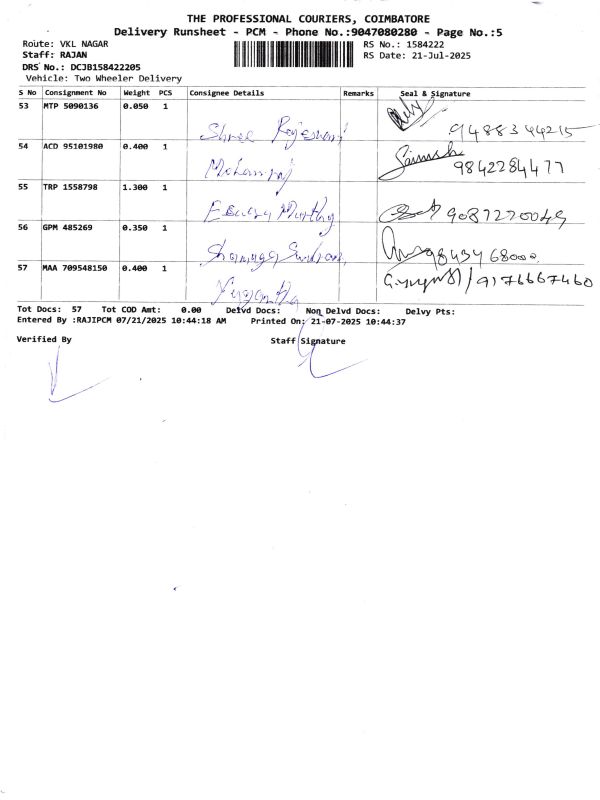 THE PROFESSIONAL COURIERS, COIMBATORE
Delivery Runsheet - PCM - Phone No.:9047080280 - Page No.:5
Route: VKL NAGAR RS No.: 1584222
Staff: RAJAN RS Date: 21-Jul-2025
DRS No.: DCJB158422205
Vehicle: Two Wheeler Delivery
S No Consignment No Weight PCS Consignee Details Remarks Seal & Signature
53 MTP 5090136 0.050 1
Shree Rajeswari 9488344215
54 ACD 95101980 0.400 1
Mohanraj 9842284477
55 TRP 1558798 1.300 1
Eswara Murthy 9087270049
56 GPM 485269 0.350 1
98434 68000
57 MAA 709548150 0.400 1
9176667460
Tot Docs: 57 Tot COD Amt: 0.00 Delvd Docs: Non Delvd Docs: Delvy Pts:
Entered By :RAJIPCM 07/21/2025 10:44:18 AM Printed On: 21-07-2025 10:44:37
Verified By Staff Signature